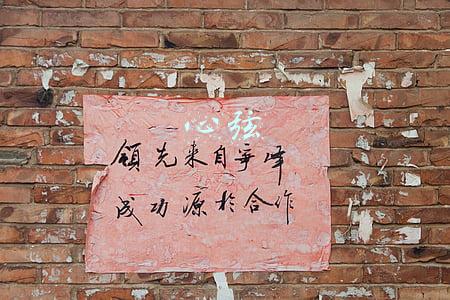 心弦
领先来自争峰
成功源於合作